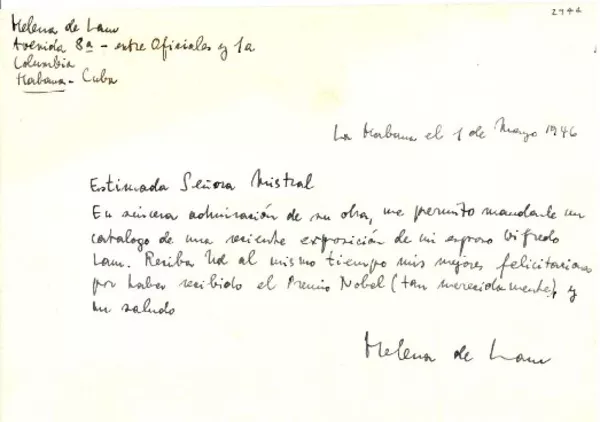 2744
Helena de Lam
Avenida 8ª - entre Oficiales y 1a
Columbia
Habana - Cuba
La Habana el 1 de Mayo 1946
Estimada Señora Mistral
En sincera admiración de su obra, me permito mandarle un
catalogo de una reciente exposición de mi esposo Wifredo
Lam. Reciba Ud al mismo tiempo mis mejores felicitaciones
por haber recibido el Premio Nobel (tan merecidamente), y
un saludo
Helena de Lam